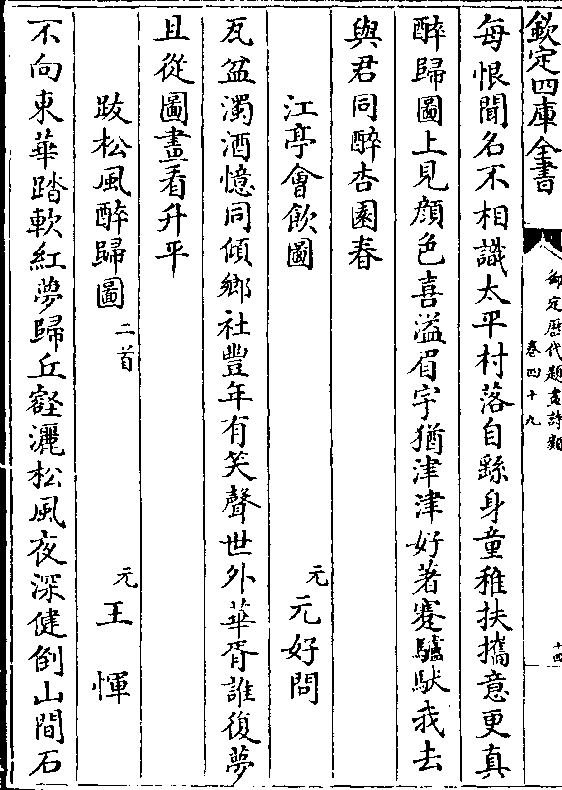 欽定四庫全書
御定歷代題畫詩類
卷四十九
十四
每恨聞名不相識太平村落自繇身童稚扶攜意更真
醉歸圖上見顔色喜溢眉宇猶津津好著蹇驢馱我去
與君同醉杏園春
江亭會飲圖 元 元好問
瓦盆濁酒憶同傾鄉社豐年有笑聲世外華胥誰復夢
且從圖畫看升平
跋松風醉歸圖 二首 元 王惲
不向東華踏軟紅夢歸丘壑灑松風夜深健倒山間石